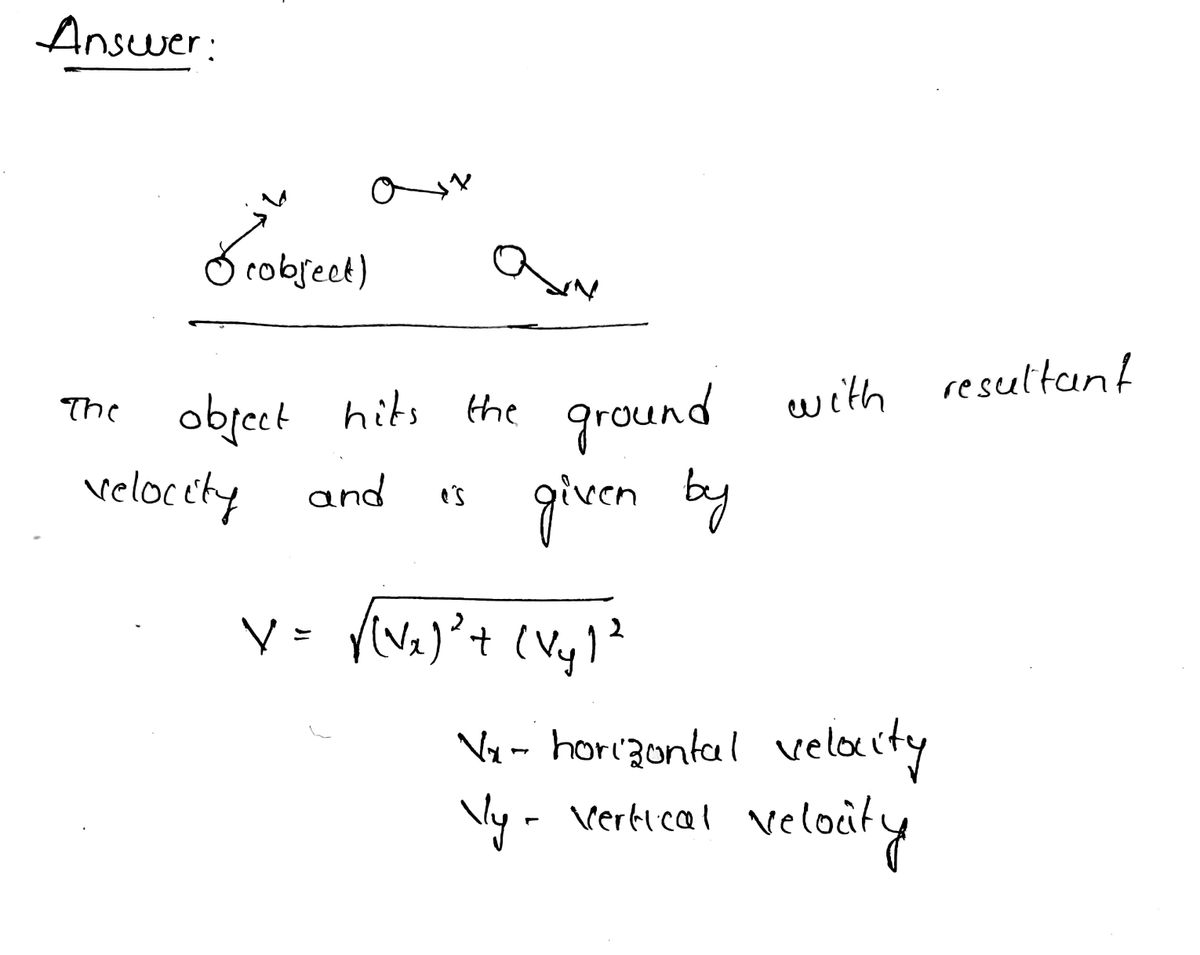 Answer:
V
V
(object)
V
The object hits the ground with resultant
velocity and is given by
V = √(Vx)² + (Vy)²
Vx - horizontal velocity
Vy - vertical velocity